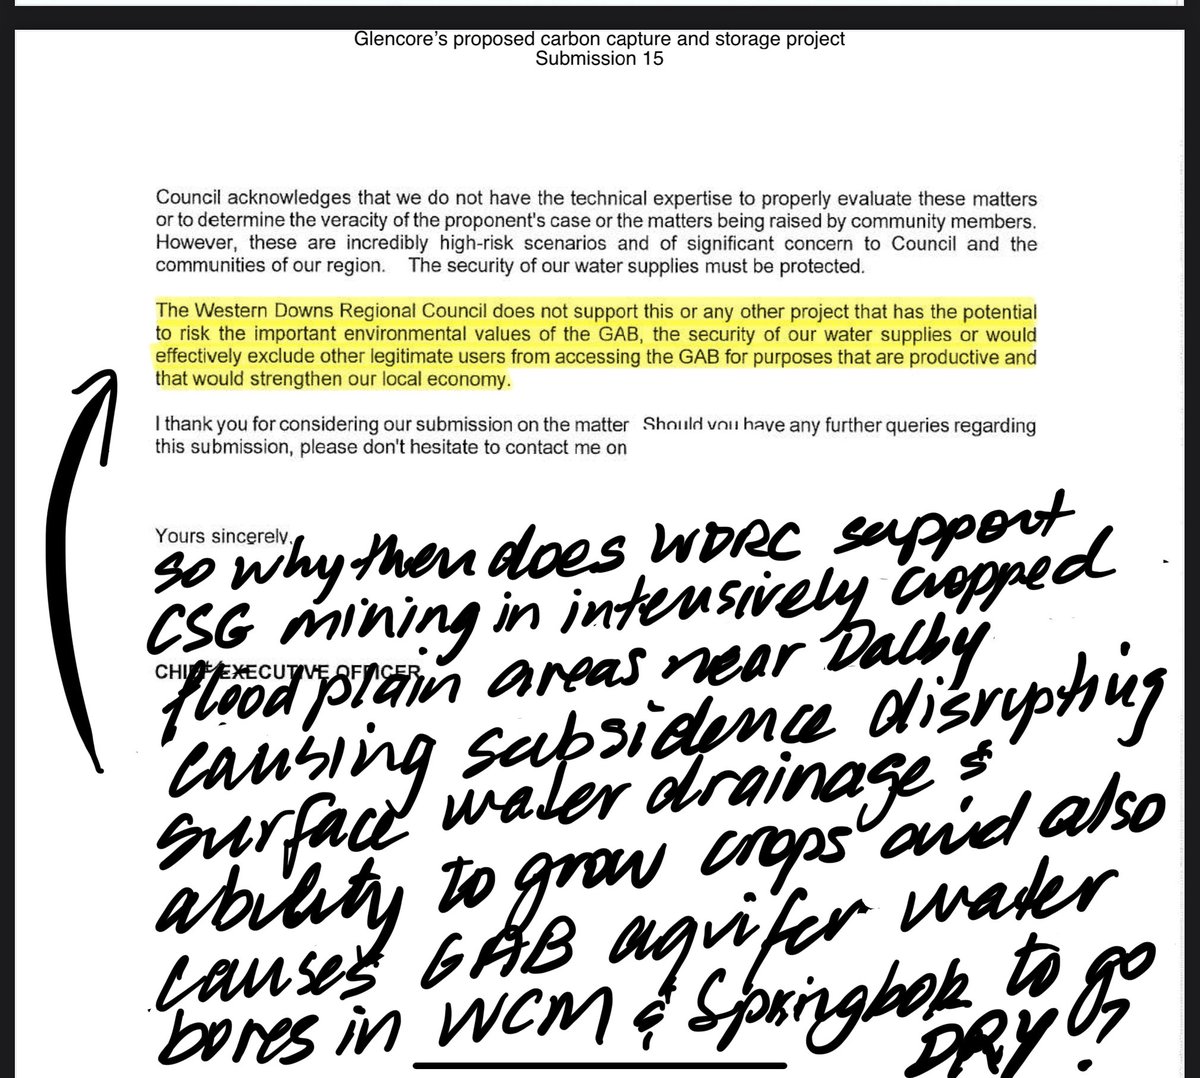 Glencore's proposed carbon capture and storage project
Submission 15
Council acknowledges that we do not have the technical expertise to properly evaluate these matters
or to determine the veracity of the proponent's case or the matters being raised by community members.
However, these are incredibly high-risk scenarios and of significant concern to Council and the
communities of our region. The security of our water supplies must be protected.
The Western Downs Regional Council does not support this or any other project that has the potential
to risk the important environmental values of the GAB, the security of our water supplies or would
effectively exclude other legitimate users from accessing the GAB for purposes that are productive and
that would strengthen our local economy.
I thank you for considering our submission on the matter Should you have any further queries regarding
this submission, please don't hesitate to contact me on
Yours sincerely,
so why then does WDRC support
CSG mining in intensively cropped
CHIEF EXECUTIVE OFFICER
flood plain areas near Dalby
causing subsidence disrupting
surface water drainage &
ability to grow crops and also
causes GAB aquifer water
bores in WCM & Springbok to go
DRY?